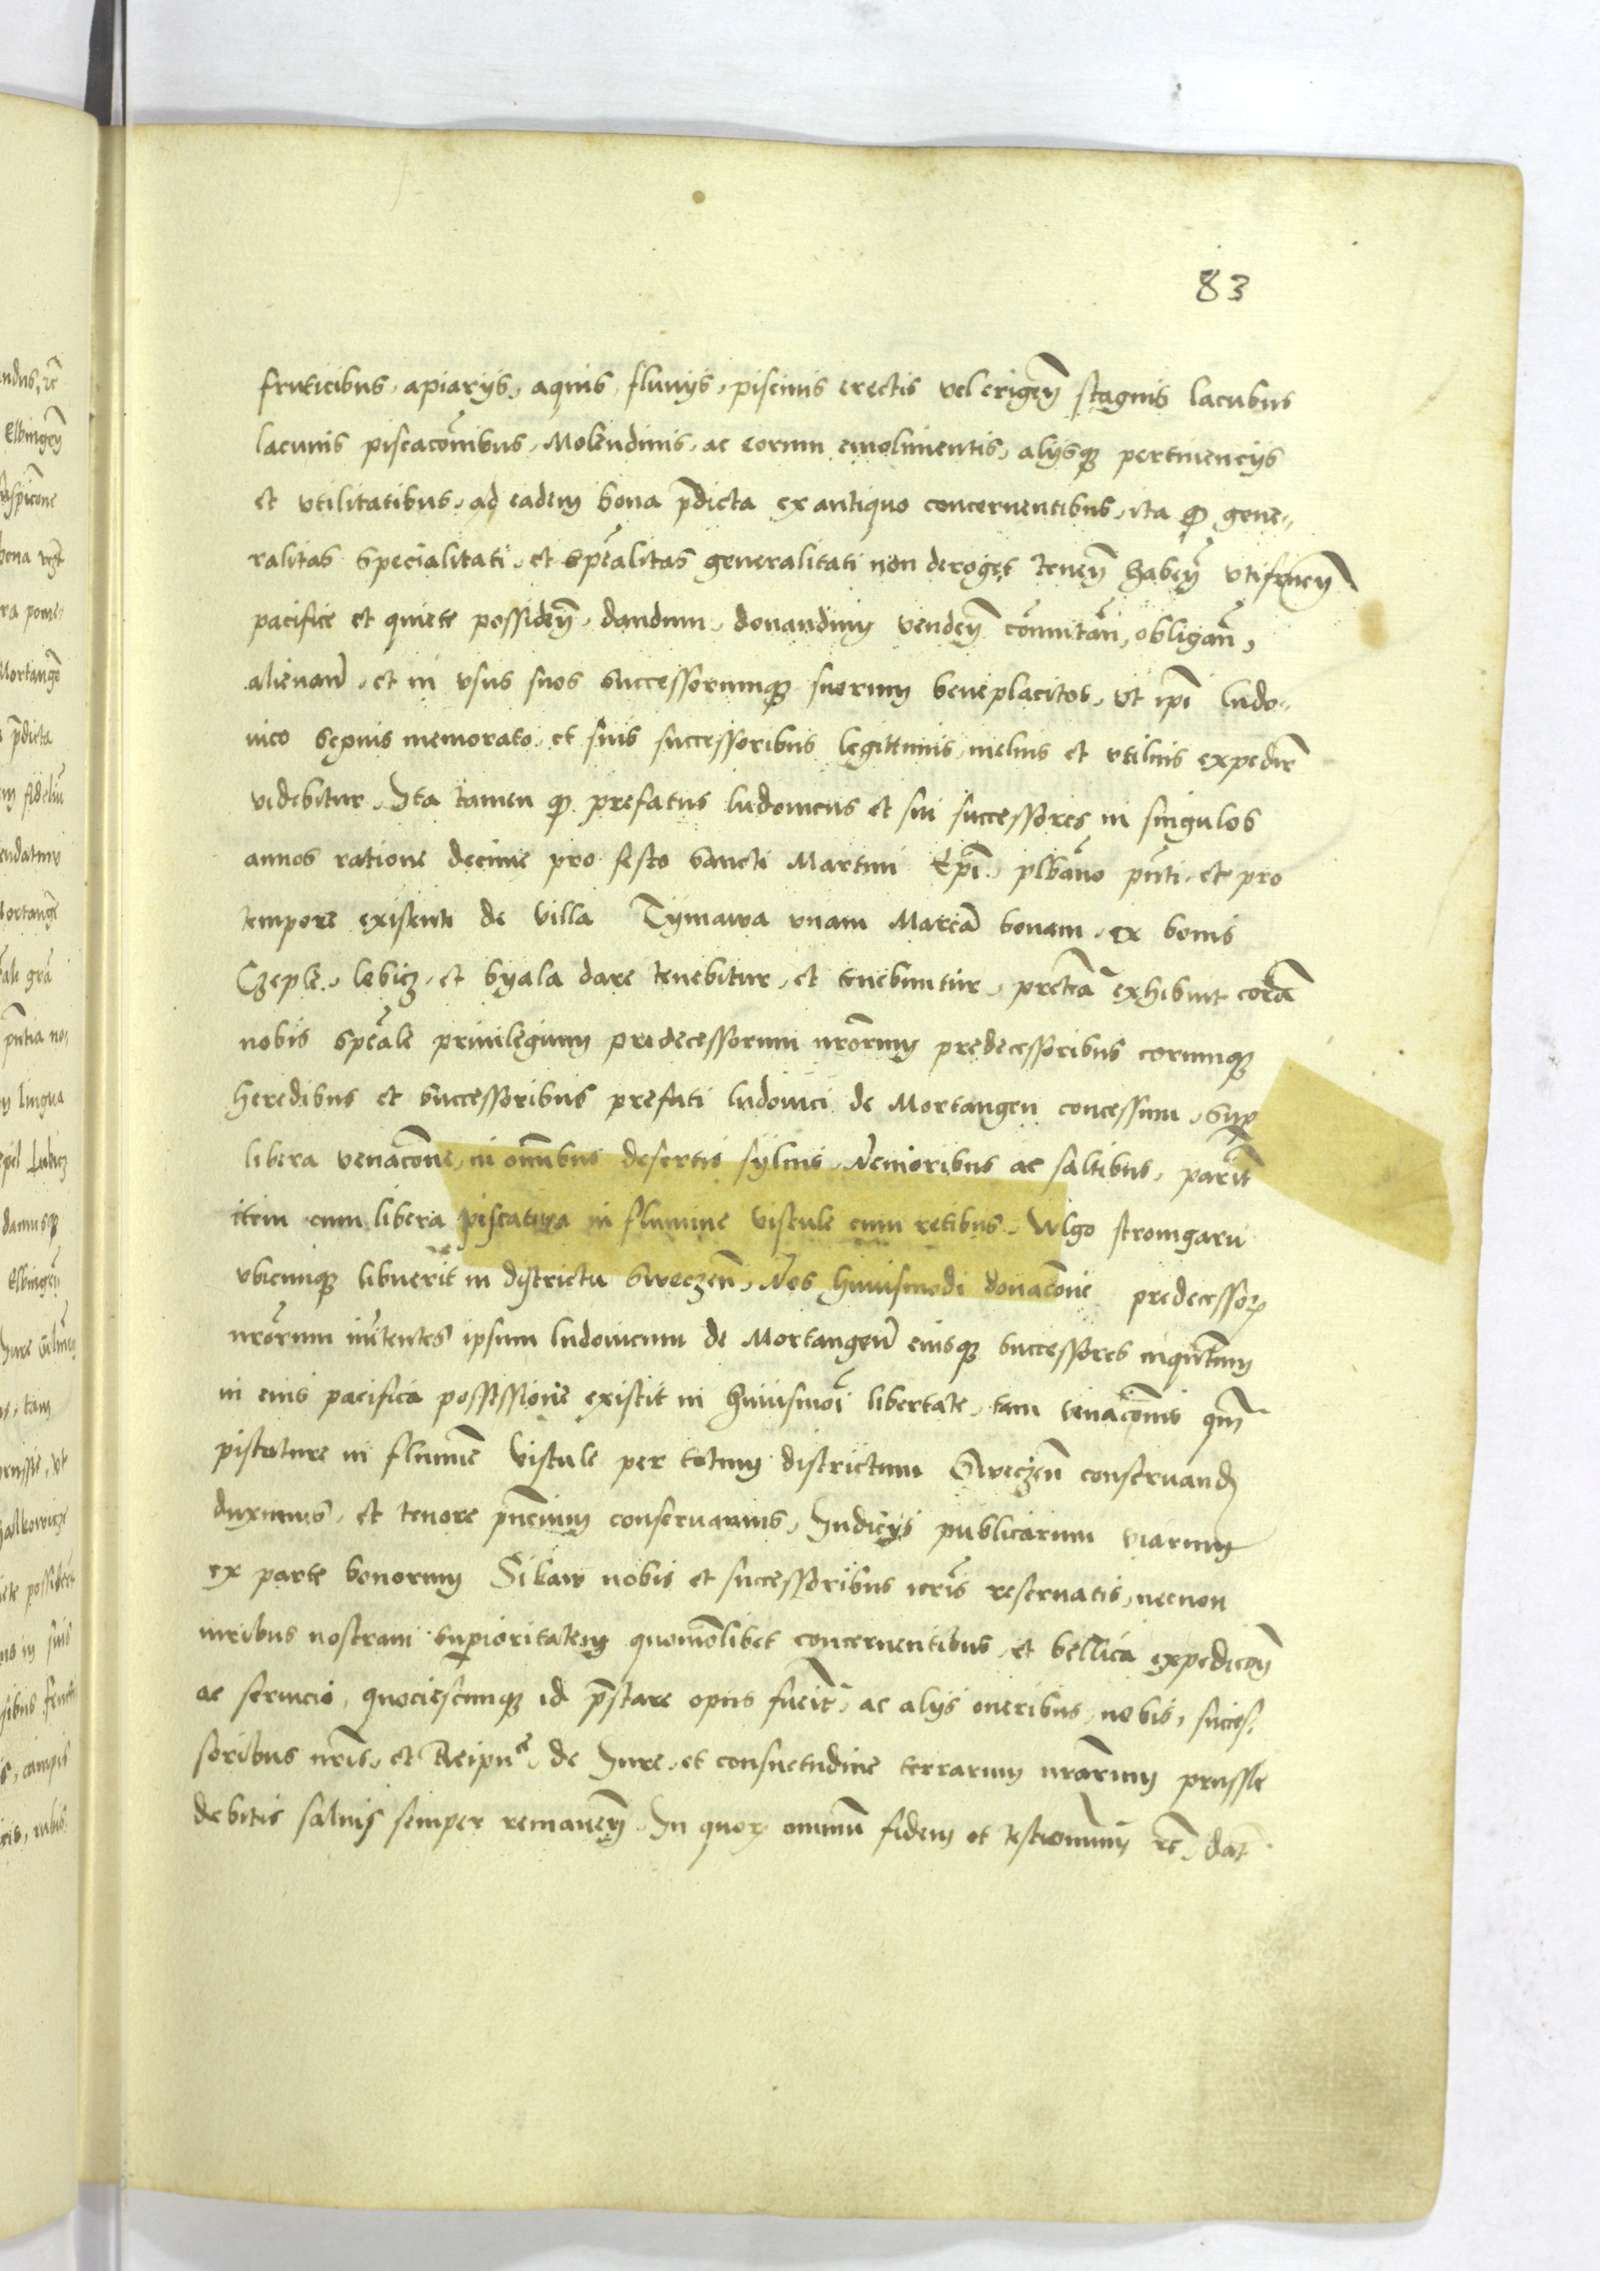 83
fruticibus, apiarys, aquis, fluuys, piscinis erectis vel erigen̄ stagnis lacubus
lacunis piscacōnibus, Molendinis, ac eorum emolimentis, alysqȝ pertinencys
et vtilitatibus, ad eadem bona p̄dicta ex antiquo concernentibus, ita ꝙ gene-
ralitas specialitati, et spēalitas generalitati non deroget tenen̄ haben̄ vtifruen̄
pacifice et quiete possiden̄, dandum, donandum venden̄ cōmutan̄, obligan̄,
alienan̄, et in vsus suos successorumqȝ suorum beneplacitos, vt ip̄i Ludo-
uico sepius memorato, et suis successoribus legittimis, melius et vtilius expedire
videbitur, Ita tamen ꝙ prefatus Ludouicus et sui successores in singulos
annos ratione decime pro festo Sancti Martini Ep̄i, plb̄ano pn̄ti, et pro
tempore existenti de villa Tymawa vnam Marcā bonam, ex bonis
Czeple, lebicz, et byala dare tenebitur, et tenebuntur, pretea exhibuit corā
nobis spēale priuilegium predecessorum nrōrum predecessoribus eorumqȝ
heredibus et successoribus prefati Ludouici de Mortangen concessum, sup
libera venacōne, in omībus desertis syluis, Nemoribus ac saltibus, parit̄
item cum libera piscatura in flumine Vistule cum retibus, Wlgo stromgarn
vbicunqȝ libuerit in districtu Sweczen̄, Nos huiusmodi donacōnie predecessoꝝ
nrōrum inītentes ipsum Ludouicum de Mortangen̄ eiusqȝ successores inqn̄tum
in eius pacifica possessione existit in huiusmōi libertate, tam venacōnis qm̄
piscature in flumīe Vistule per totum districtum Sweczen̄ conseruand̄
duximus, et tenore pn̄cium conseruamus, Iudicys publicarum viarum
ex parte bonorum Sikaw nobis et successoribus nrīs reseruatis, necnon
iuribus nostram supioritatem quomōlibet concernentibus, et bellica expedicōn̄
ac seruicio, quociescunqȝ id p̄stare opus fuerit, ac alys oneribus, nobis, succes-
soribus nrīs, et Reipuᵉ, de Iure, et consuetudine terrarum nrārum prussie
debitis saluis semper remanen̄, In quoꝝ omnium fidem et testimonium &c, dat̄